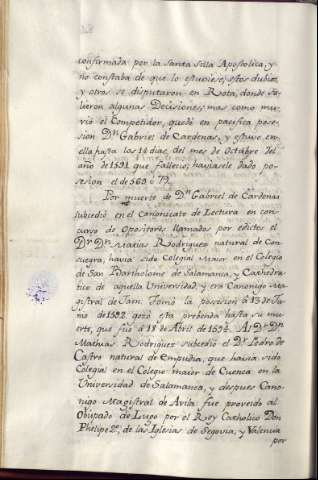 confirmada por la Santa Silla Apostolica, y
no constaba de que lo estubiese; estos dubios
y otros se disputaron en Rota, donde sa-
lieron algunas Decisiones; mas como mu-
rió el Competidor, quedó en pacifica pose-
sion Dn Gabriel de Cardenas, y estuvo en
ella hasta los 18 dias del mes de Octubre del
año de 1591 que falleció; haviasele dado po-
sesion el de 569 ó 79.
Por muerte de Dn Gabriel de Cardenas
subcedió en el Canonicato de Lectura en con-
curso de Opositores llamados por edictos el
Dr Dn Matias Rodriguez natural de Con-
suegra, havia sido Colegial Maior en el Colegio
de San Bartholome de Salamanca, y Cathedra-
tico de aquella Universidad y era Canonigo Ma-
gistral de Tomó la posesion á 13 de Ju-
de 1592 gozó esta prebenda hasta su mu-
erte, que fué á 18 de Abril de Al Dr Dn
Mathias Rodriguez subcedio el Dr Pedro de
Castro natural de Empudia, que havia sido
Colegial en el Colegio maior de Cuenca en la
Universidad de Salamanca, y despues Cano-
nigo Magistral de Avila fue proveido al
Obispado de Lugo por el Rey Catholico Don
Phelipe 2º, de las Iglesias de Segovia, y Valencia
por